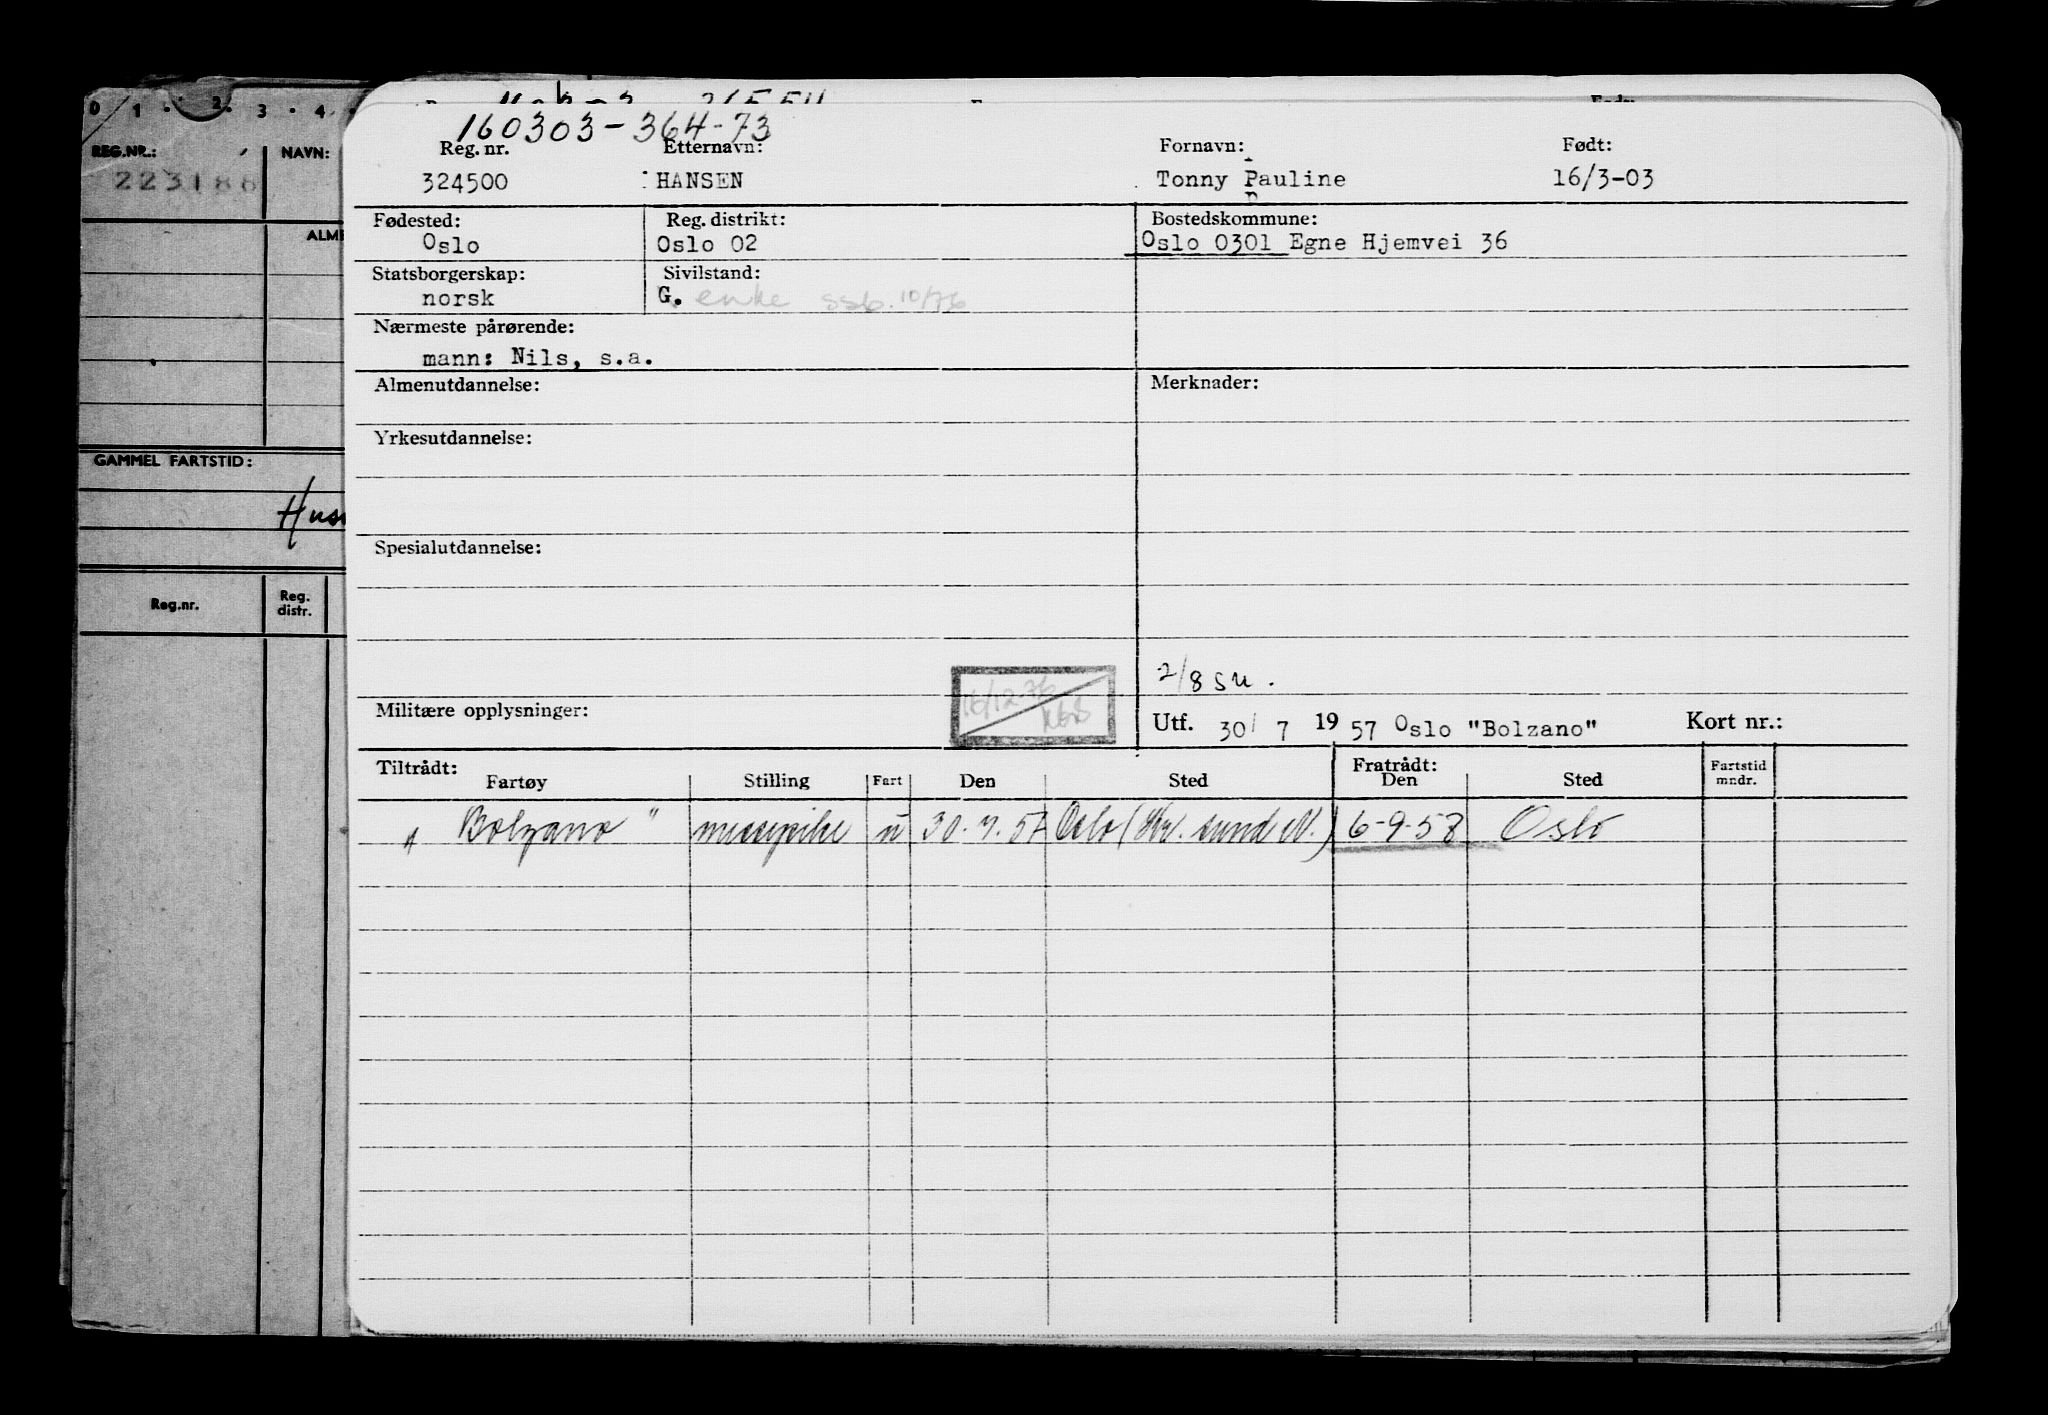 0 1 . . 2. 3 . 4 .
REG.NR.: NAVN:
223186
ALM
GAMMEL FARTSTID:
Hus
Reg.nr. Reg. distr.
160303-364-73
Reg. nr. Etternavn: Fornavn: Født:
324500 HANSEN Tonny Pauline 16/3-03
Fødested: Reg. distrikt: Bostedskommune:
Oslo Oslo 02 Oslo 0301 Egne Hjemvei 36
Statsborgerskap: Sivilstand:
norsk G. enke ssb. 10/76
Nærmeste pårørende:
mann: Nils, s.a.
Almenutdannelse: Merknader:
Yrkesutdannelse:
Spesialutdannelse:
2/8 su.
16/12-76
Militære opplysninger: Utf. 30/ 7 19 57 Oslo "Bolzano" Kort nr.:
Tiltrådt: Fratrådt: Fartstid
Fartøy Stilling Fart Den Sted Den Sted mndr.
"Bolzano" messepike u 30.7.57 Oslo (Kr. sund N.) 6-9-58 Oslo